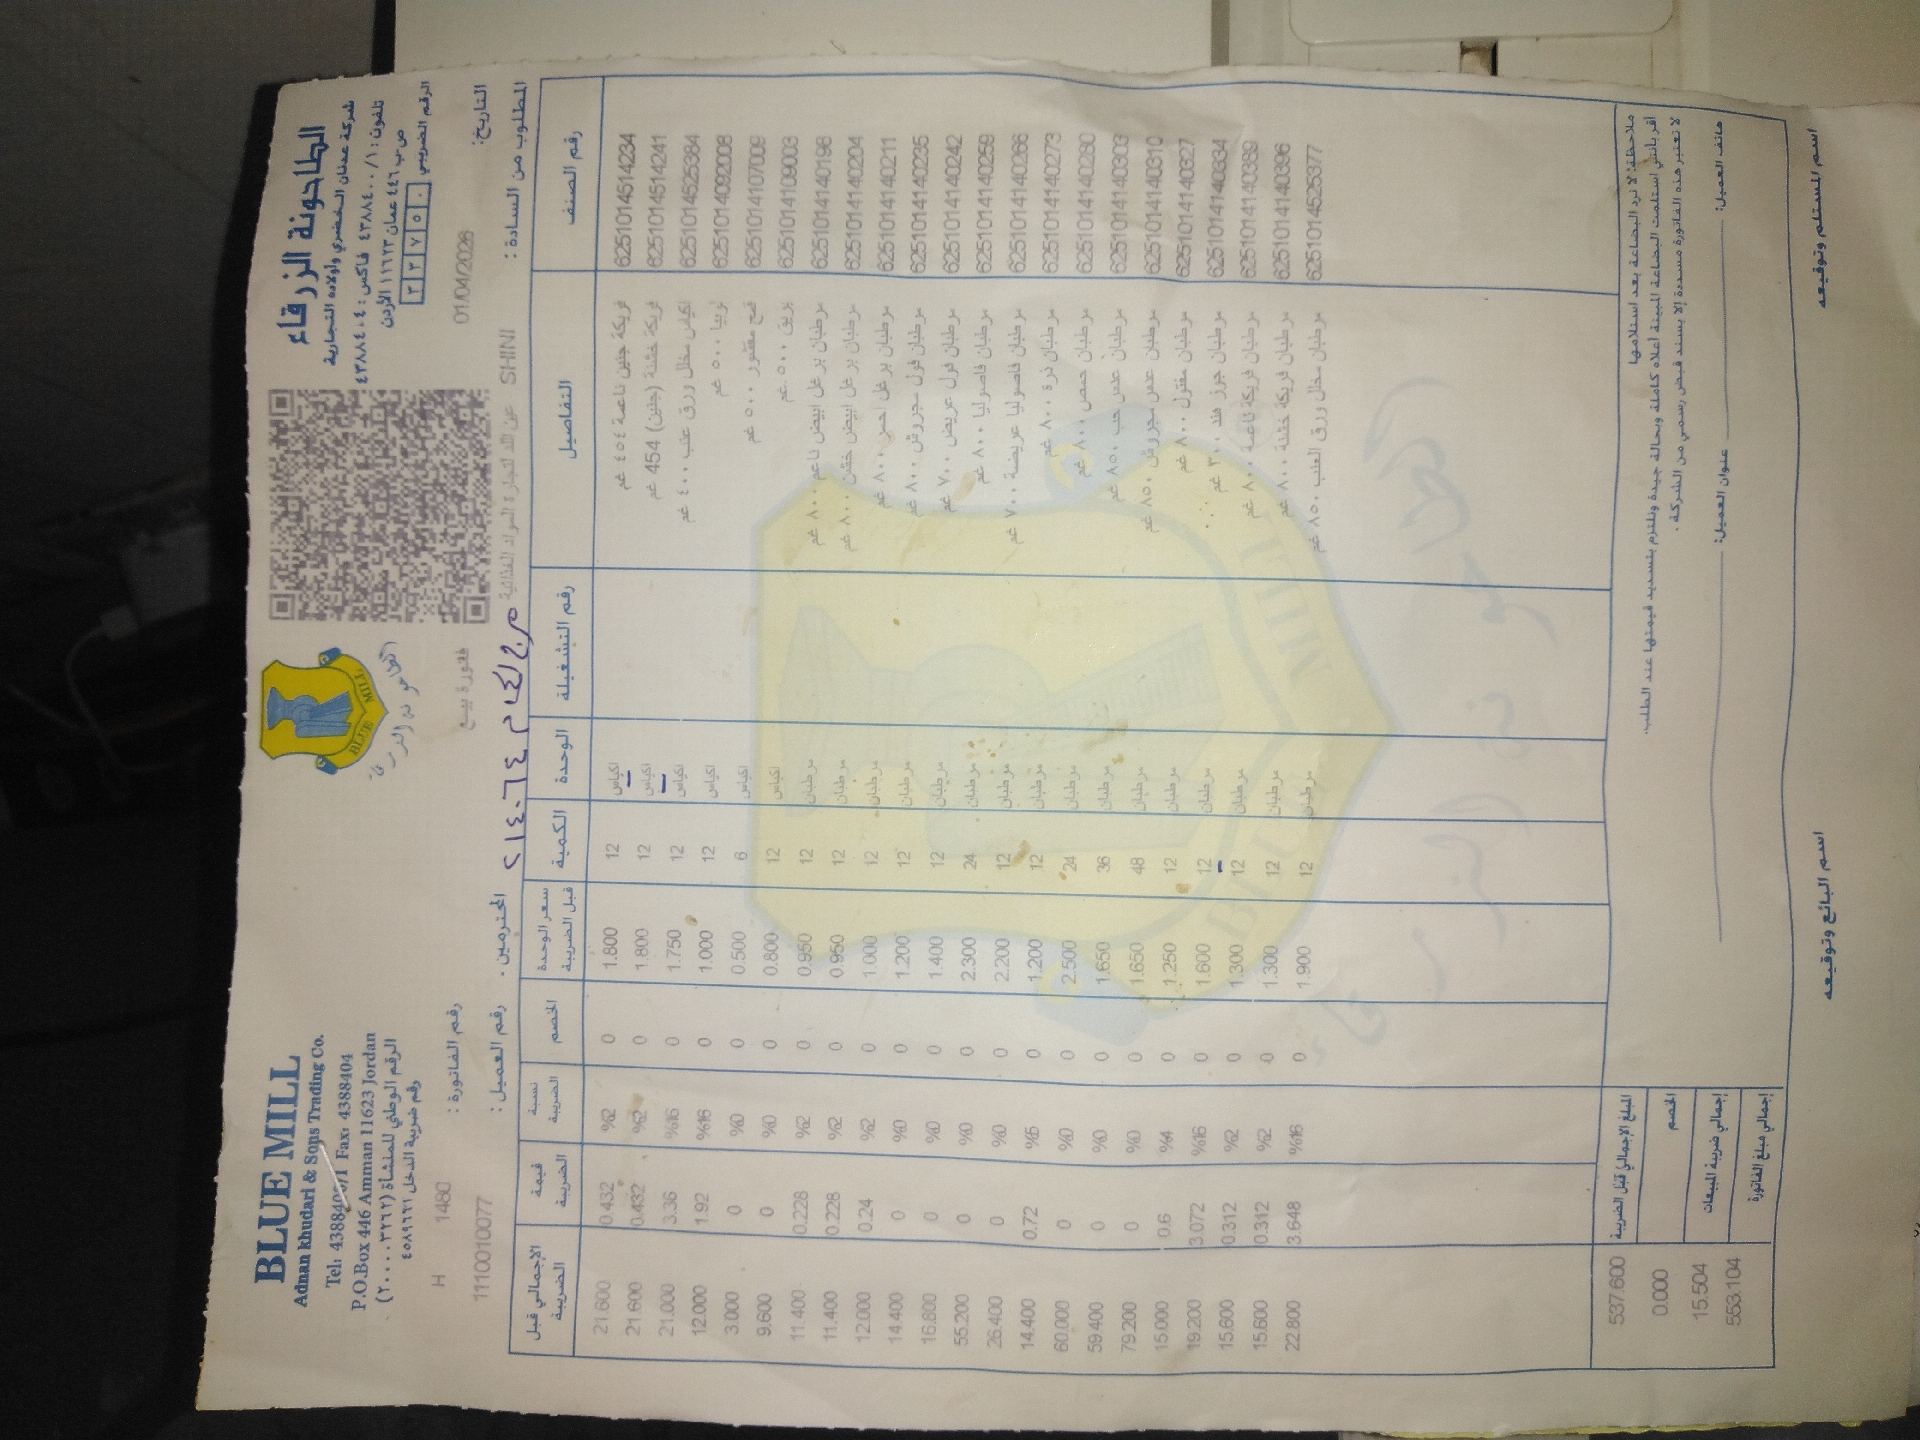 BLUE MILL
Adnan khudari & Sons Trading Co.
Tel: 4388400/1 Fax: 4388404
P.O.Box 446 Amman 11623 Jordan
الرقم الوطني للمنشاة (٢٠٠٠٣٢٦٦٢)
رقم ضريبة الدخل ٤٥٨٩٦٢١
BLUE MILL
الطاحونة الزرقاء
الطاحونة الزرقاء
شركة عدنان الخضري وأولاده التجارية
تلفون: ٤٣٨٨٤٠٠/١ فاكس: ٤٣٨٨٤٠٤
ص ب ٤٤٦ عمان ١١٦٢٣ الأردن
الرقم الضريبي ٣٣٧٥٠
التاريخ: 01/04/2026
فاتورة بيع
رقم الفاتورة: 1480 H
المطلوب من السادة: SHINI
المحترمين.
رقم العميل: 11100100077
رقم الصنف التفاصيل رقم التشغيلة الوحدة الكمية سعر الوحدة قبل الضريبة الخصم نسبة الضريبة قيمة الضريبة الإجمالي قبل الضريبة
6251014514234 فريكة جنين ناعمة ٤٥٤ غم اكياس 12 1.800 0 %2 0.432 21.600
6251014514241 فريكة خشنة (جنين) 454 غم اكياس 12 1.800 0 %2 0.432 21.600
6251014525384 اكياس مخلل ورق عنب ٤٠٠ غم اكياس 12 1.750 0 %16 3.36 21.000
6251014092008 لوبيا ٥٠٠ غم اكياس 12 1.000 0 %16 1.92 12.000
6251014107009 قمح مقشور ٥٠٠ غم اكياس 6 0.500 0 %0 0 3.000
6251014109003 ٥٠٠ غم اكياس 12 0.800 0 %0 0 9.600
6251014140198 مرطبان برغل ابيض ناعم ٨٠٠ غم مرطبان 12 0.950 0 %2 0.228 11.400
6251014140204 مرطبان برغل ابيض خشن ٨٠٠ غم مرطبان 12 0.950 0 %2 0.228 11.400
6251014140211 مرطبان برغل احمر ٨٠٠ غم مرطبان 12 1.000 0 %2 0.24 12.000
6251014140235 مرطبان فول مجروش ٨٠٠ غم مرطبان 12 1.200 0 %0 0 14.400
6251014140242 مرطبان فول عريض ٧٠٠ غم مرطبان 12 1.400 0 %0 0 16.800
6251014140259 مرطبان فاصوليا ٨٠٠ غم مرطبان 24 2.300 0 %0 0 55.200
6251014140266 مرطبان فاصوليا عريضة ٧٠٠ غم مرطبان 12 2.200 0 %0 0 26.400
6251014140273 مرطبان ذرة ٨٠٠ غم مرطبان 12 1.200 0 %5 0.72 14.400
6251014140280 مرطبان حمص ٨٠٠ غم مرطبان 24 2.500 0 %0 0 60.000
6251014140303 مرطبان عدس حب ٨٥٠ غم مرطبان 36 1.650 0 %0 0 59.400
6251014140310 مرطبان عدس مجروش ٨٥٠ غم مرطبان 48 1.650 0 %0 0 79.200
6251014140327 مرطبان مفتول ٨٠٠ غم مرطبان 12 1.250 0 %4 0.6 15.000
6251014140334 مرطبان جوز هند ٣٠٠ غم مرطبان 12 1.600 0 %16 3.072 19.200
6251014140389 مرطبان فريكة ناعمة ٨٠٠ غم مرطبان 12 1.300 0 %2 0.312 15.600
6251014140396 مرطبان فريكة خشنة ٨٠٠ غم مرطبان 12 1.300 0 %2 0.312 15.600
6251014525377 مرطبان مخلل ورق العنب ٨٥٠ غم مرطبان 12 1.900 0 %16 3.648 22.800
BLUE MILL
الطاحونة الزرقاء
المبلغ الإجمالي قبل الضريبة 537.600
الخصم 0.000
إجمالي ضريبة المبيعات 15.504
إجمالي مبلغ الفاتورة 553.104
ملاحظة: لا ترد البضاعة بعد استلامها
أقر بأنني استلمت البضاعة المبينة أعلاه كاملة وبحالة جيدة ونلتزم بتسديد قيمتها عند الطلب.
لا تعتبر هذه الفاتورة مسددة إلا بسند قبض رسمي من الشركة.
هاتف العميل: عنوان العميل:
اسم المستلم وتوقيعه
اسم البائع وتوقيعه